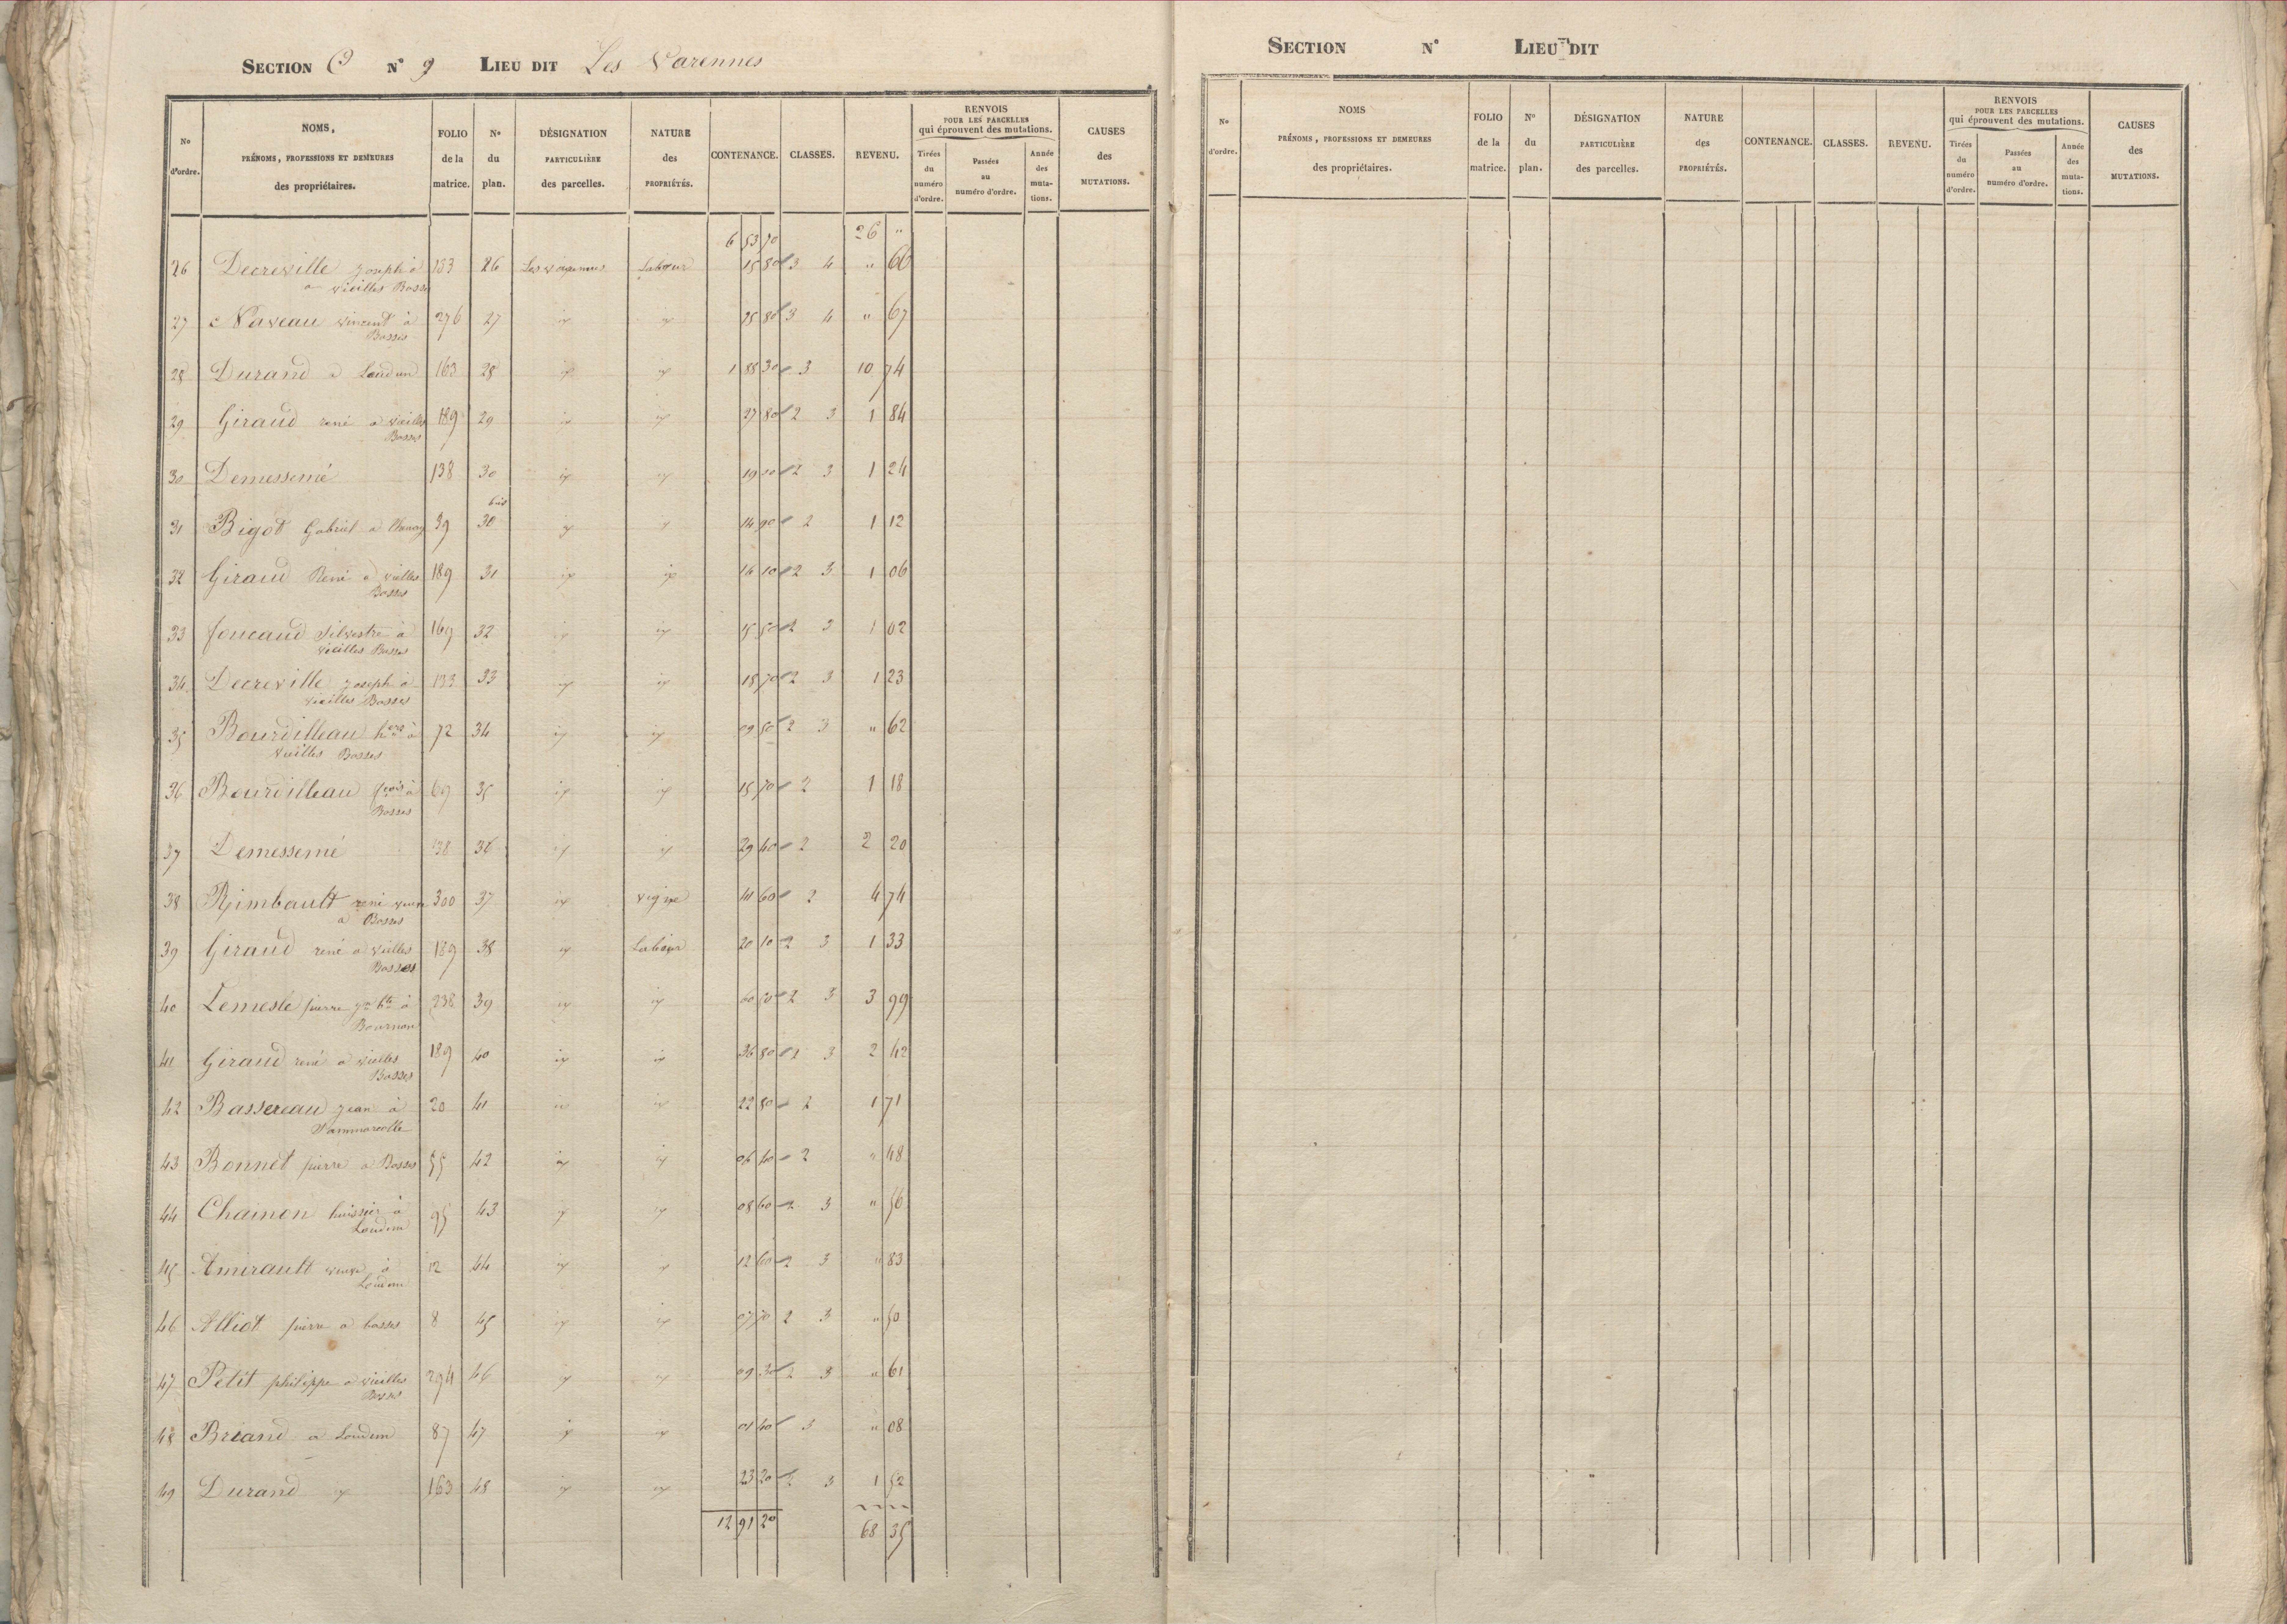 SECTION C N° 9 LIEU DIT Les Varennes
No d'ordre. NOMS, PRÉNOMS, PROFESSIONS ET DEMEURES des propriétaires. FOLIO de la matrice. No du plan. DÉSIGNATION PARTICULIÈRE des parcelles. NATURE des PROPRIÉTÉS. CONTENANCE. CLASSES. REVENU. RENVOIS POUR LES PARCELLES qui éprouvent des mutations. Tirées du numéro d'ordre. Passées au numéro d'ordre. Année des mutations. CAUSES des MUTATIONS.
6 53 70 26 "
26 Decreville joseph à 133 26 Les varennes Labour 15 80 3 4 " 66
a vieilles Bosses
27 Naveau vincent à 276 27 id id 25 80 3 4 " 67
Bosses
28 Durand a Loudun 163 28 id id 1 88 30 3 10 74
29 Giraud rené a vieilles 189 29 id id 27 80 2 3 1 84
Bosses
30 Demessemé 138 30 id id 19 2 3 1 24
bis
31 Bigot Gabriel a 39 30 id id 14 90 2 1 12
32 Giraud René a vielles 189 31 id id 16 10 2 3 1 06
Bosses
33 foucaud Silvestre à 169 32 id id 15 50 2 3 1 02
vieilles Bosses
34 Decreville joseph à 133 33 id id 18 70 2 3 1 23
vieilles Bosses
35 Bourdilleau à 72 34 id id 09 50 2 3 " 62
vieilles Bosses
36 Bourdilleau frçois à 69 35 id id 15 70 2 1 18
Bosses
37 Demessemé 138 36 id id 29 40 2 2 20
38 Rimbault rené veuve 300 37 id vigne 41 60 2 4 74
a Bosses
39 Giraud rené a vielles 189 38 id Labour 20 10 2 3 1 33
Bosses
40 Lemesle pierre à 238 39 id id 60 50 2 3 3 99
Bournan
41 Giraud rené a vielles 189 40 id id 36 80 2 3 2 42
Bosses
42 Bassereau jean à 20 41 id id 22 80 2 1 71
43 Bonnet pierre a Bosses 55 42 id id 06 40 2 " 48
44 Chainon huissier à 95 43 id id 08 60 2 3 " 56
Loudun
45 Amirault veuve à 12 44 id id 12 60 2 3 " 83
Loudun
46 Alliot pierre a bosses 8 45 id id 07 70 2 3 " 50
47 Petit philippe a vieilles 294 46 id id 09 30 2 3 " 61
Bosses
48 Briand a Loudun 87 47 id id 01 40 3 " 08
49 Durand id 163 48 id id 23 20 2 3 1 52
12 91 20 68 35
SECTION N° LIEU DIT
No d'ordre. NOMS PRÉNOMS, PROFESSIONS ET DEMEURES des propriétaires. FOLIO de la matrice. No du plan. DÉSIGNATION PARTICULIÈRE des parcelles. NATURE des PROPRIÉTÉS. CONTENANCE. CLASSES. REVENU. RENVOIS POUR LES PARCELLES qui éprouvent des mutations. Tirées du numéro d'ordre. Passées au numéro d'ordre. Année des mutations. CAUSES des MUTATIONS.